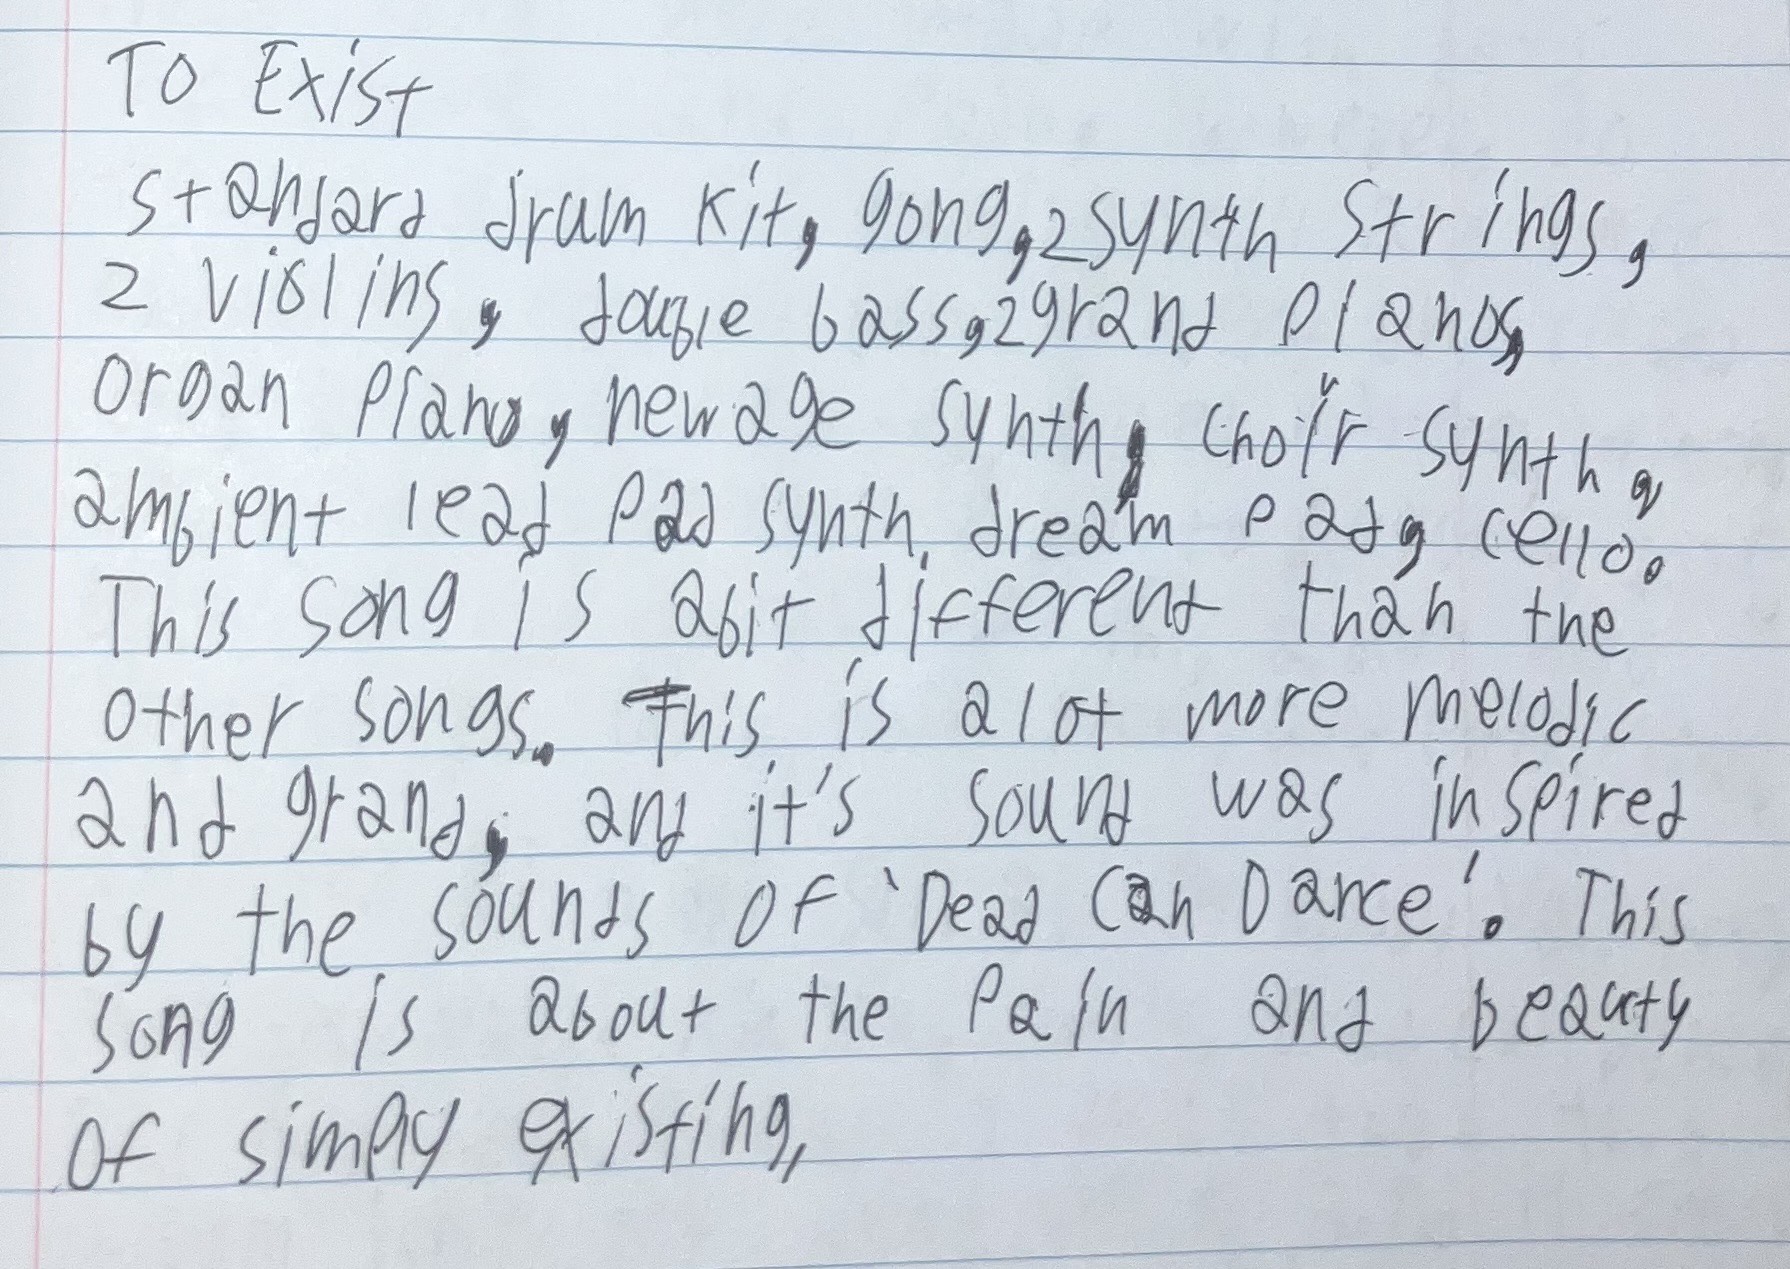 To Exist
standard drum kit, gong, 2 synth strings,
2 violins, double bass, 2 grand pianos,
organ piano, new age synth, choir synth,
ambient lead pad synth, dream pad, cello.
This song is abit different than the
other songs. This is alot more melodic
and grand, and it's sound was inspired
by the sounds of 'Dead Can Dance'. This
song is about the pain and beauty
of simply existing,